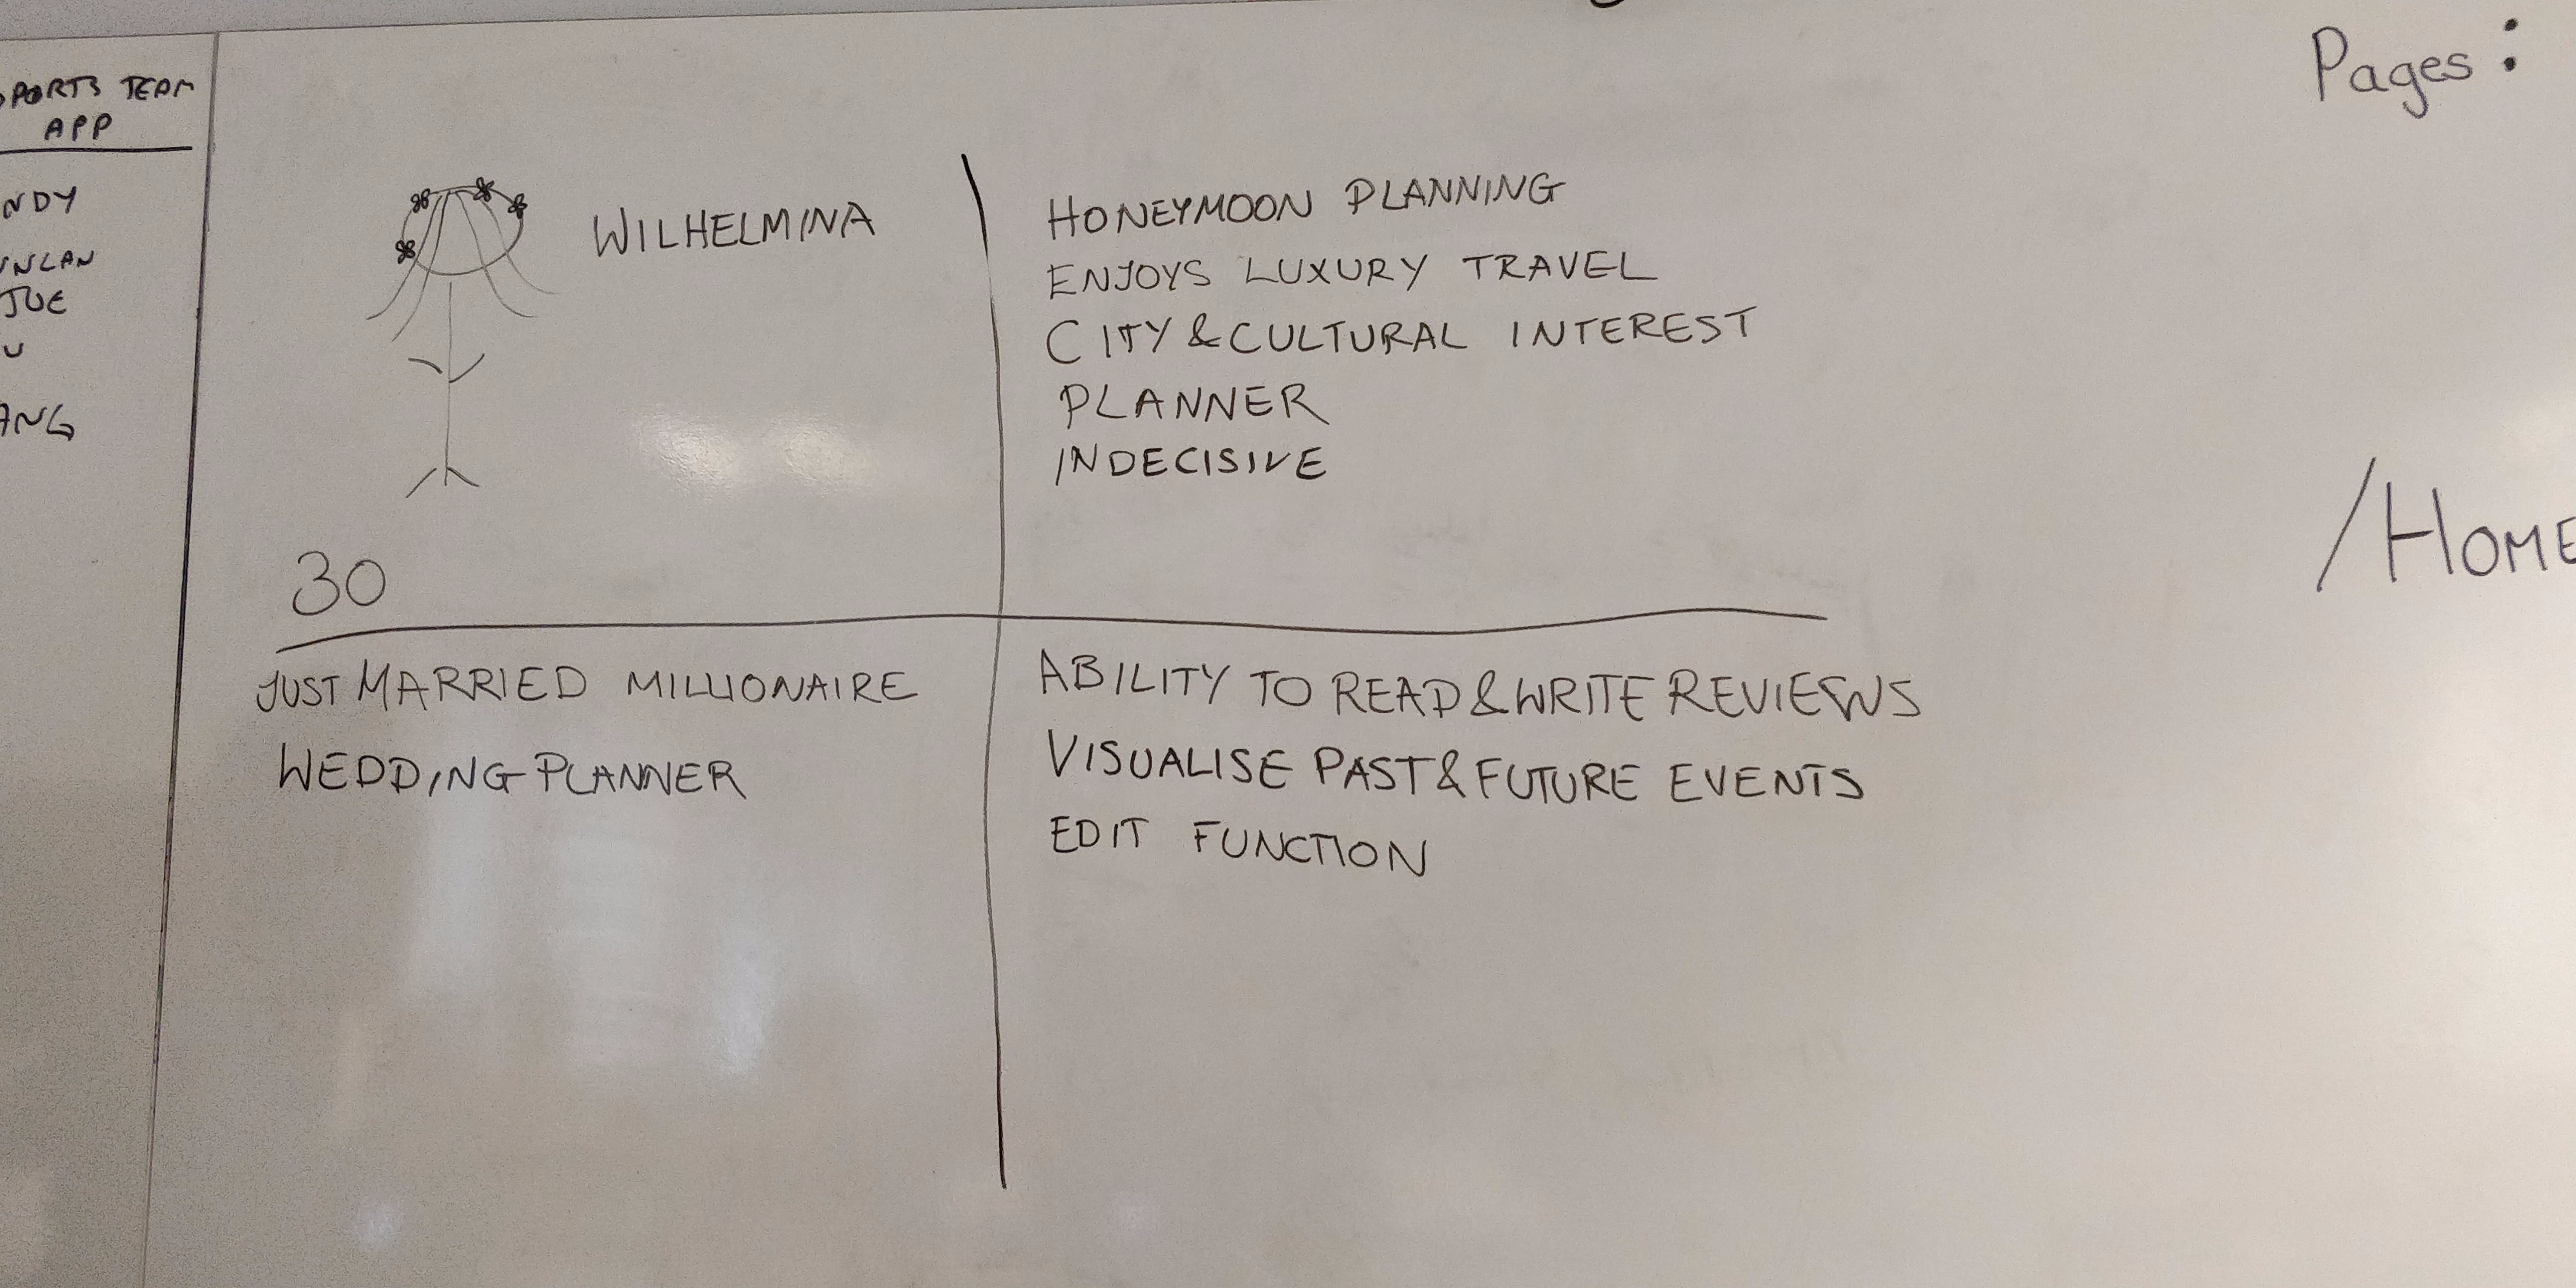 TEAM
APP
WILHELMINA
30
HONEYMOON PLANNING
ENJOYS LUXURY TRAVEL
CITY & CULTURAL INTEREST
PLANNER
INDECISIVE
JUST MARRIED MILLIONAIRE
WEDDING PLANNER
ABILITY TO READ & WRITE REVIEWS
VISUALISE PAST & FUTURE EVENTS
EDIT FUNCTION
Pages:
/HOME